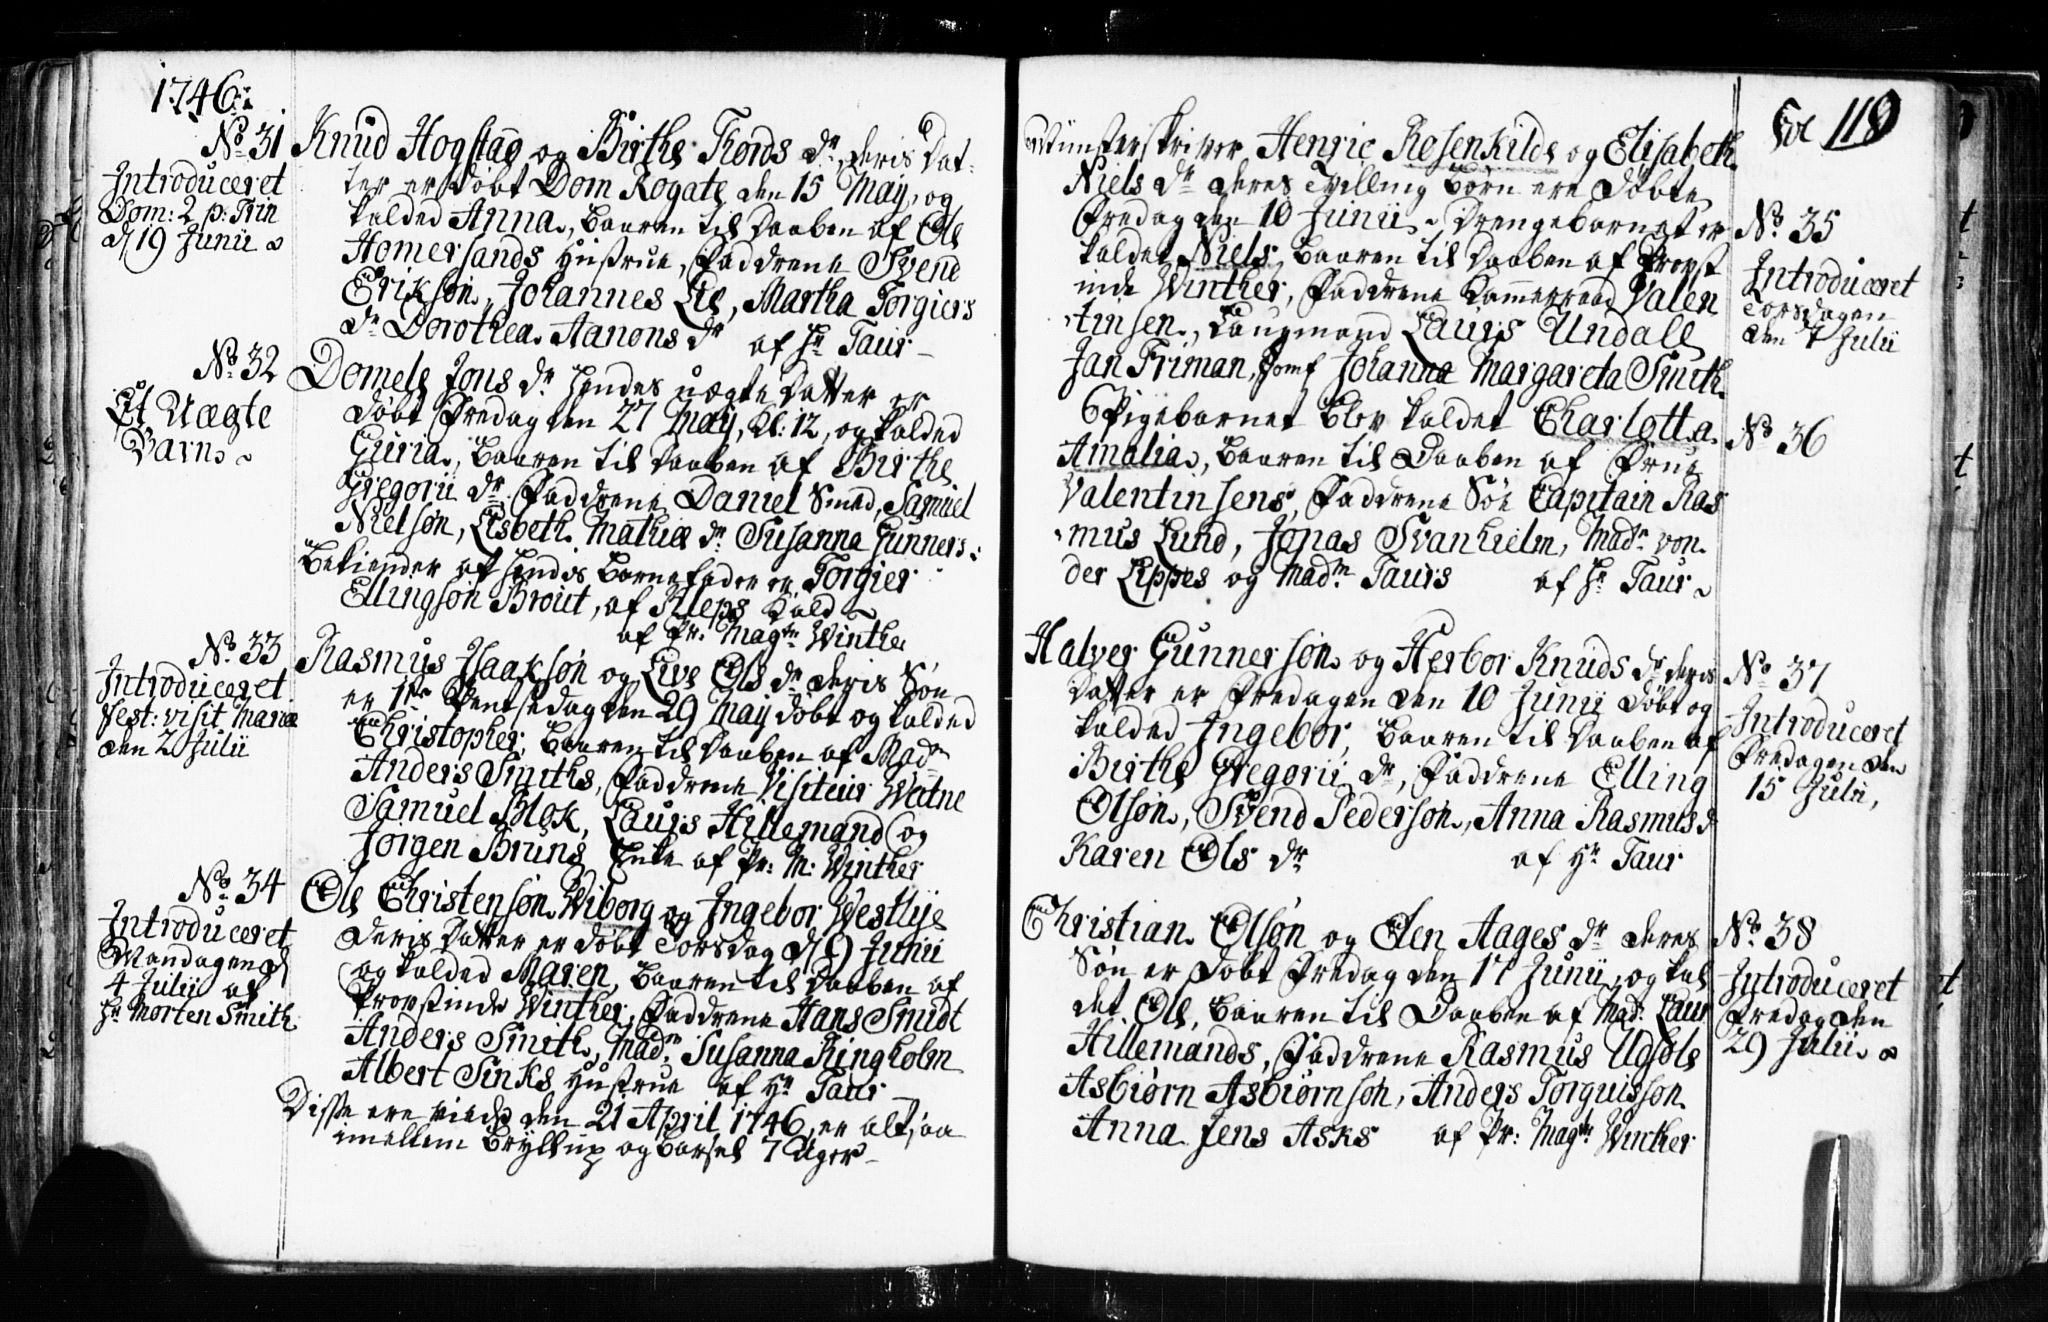 1746
No 31
Introduceret
Dom: 2 p: Trin
d 19 Junii
Knud Hogstad og Birthe Tords dr deris Dat-
ter er døbt Dom Rogate den 15 May, og
kalded Anna, baaren til Daaben af Ole
Homersands Hustrue, Faddrene Svend
Erikson, Johannes Lie, Martha Torgiers
dr Dorothea Aanons dr af Hr Taur
No 32
Et Uægte
Barn
Domele Jons dr hendes uægte Datter er
døbt Fredag den 27 May, Kl: 12, og kalded
Guria, baaren til Daaben af Birthe
Gregorii dr Faddrene Daniel Smed, Samuel
Nielsøn, Lisbeth Mathiæ dr Susanna Gunners:
bekiender at hendis Barnefader er Torgier
Ellingsøn Brout, af Kleps Kald
af Pr: Magtr Winther
No 33
Introduceret
Fest: visit Mariæ
den 2 Julii
Rasmus Isaaksøn og Live Ols dr deris Søn
er 1ste Pentsedag den 29 May døbt og kalded
Christopher, baaren til Daaben af Madm
Anders Smiths, Faddrene Visiteur Watne
Samuel Blok, Laurs Hillemand og
Jørgen Bruns Enke af Pr: M: Winther
No 34
Introduceret
Mandagen d
4 Julii af
Hr Morten Smith
Ole Christensøn Wiborg og Ingebor Westlye
deris Datter er døbt Torsdag d 9 Junii
og kalded Maren, baaren til Daaben af
Provstinde Winther, Faddrene Hans Smidt
Anders Smith, Madm Susanna Ringholm
Albert Sinks Hustrue af Hr Taur
Disse ere viede den 21 April 1746, er altsaa
imellem Bryllup og Barsel 7 Uger
Fol 118
Henric Rosenkilde og Elisabeth
Niels dr deres Tvilling Børn ere døbte
Fredag den 10 Junii, Drengebarnet er
kaldet Niels, baaren til Daaben af Provst
inde Winther, Faddrene Kammerraad Valen
tinsen, Laugmand Laurs Undall
Jan Friman, Jomf Johanna Margareta Smith
No 35
Introduceret
Torsdagen
den 7 Julii
Pigebarnet blev kaldet Charlotta
Amalia, baaren til Daaben af Frue
Valentinsens, Faddrene Søe Capitain Ras
mus Lund, Jonas Svanhielm, Madm von
der Lippes og Madm Taurs af Hr Taur
No 36
Halver Gunnersøn og Herbor Knuds dr deris
Datter er Fredagen den 10 Junii døbt og
kalded Ingebor, baaren til Daaben af
Birthe Gregorii dr, Faddrene Elling
Olsøn, Svend Pedersøn, Anna Rasmus d
Karen Ols dr af Hr Taur
No 37
Introduceret
Fredagen den
15 Julii,
Christian Olsøn og Elen Aages dr deres
Søn er døbt Fredag den 17 Junii, og kal
det Ole, baaren til Daaben af Mad: Laur
Hillemands, Faddrene Rasmus Udsole
Asbiørn Asbiørnsøn, Anders Torguisson
Anna Jens Asks af Pr: Magtr Winther
No 38
Introduceret
Fredag den
29 Julii